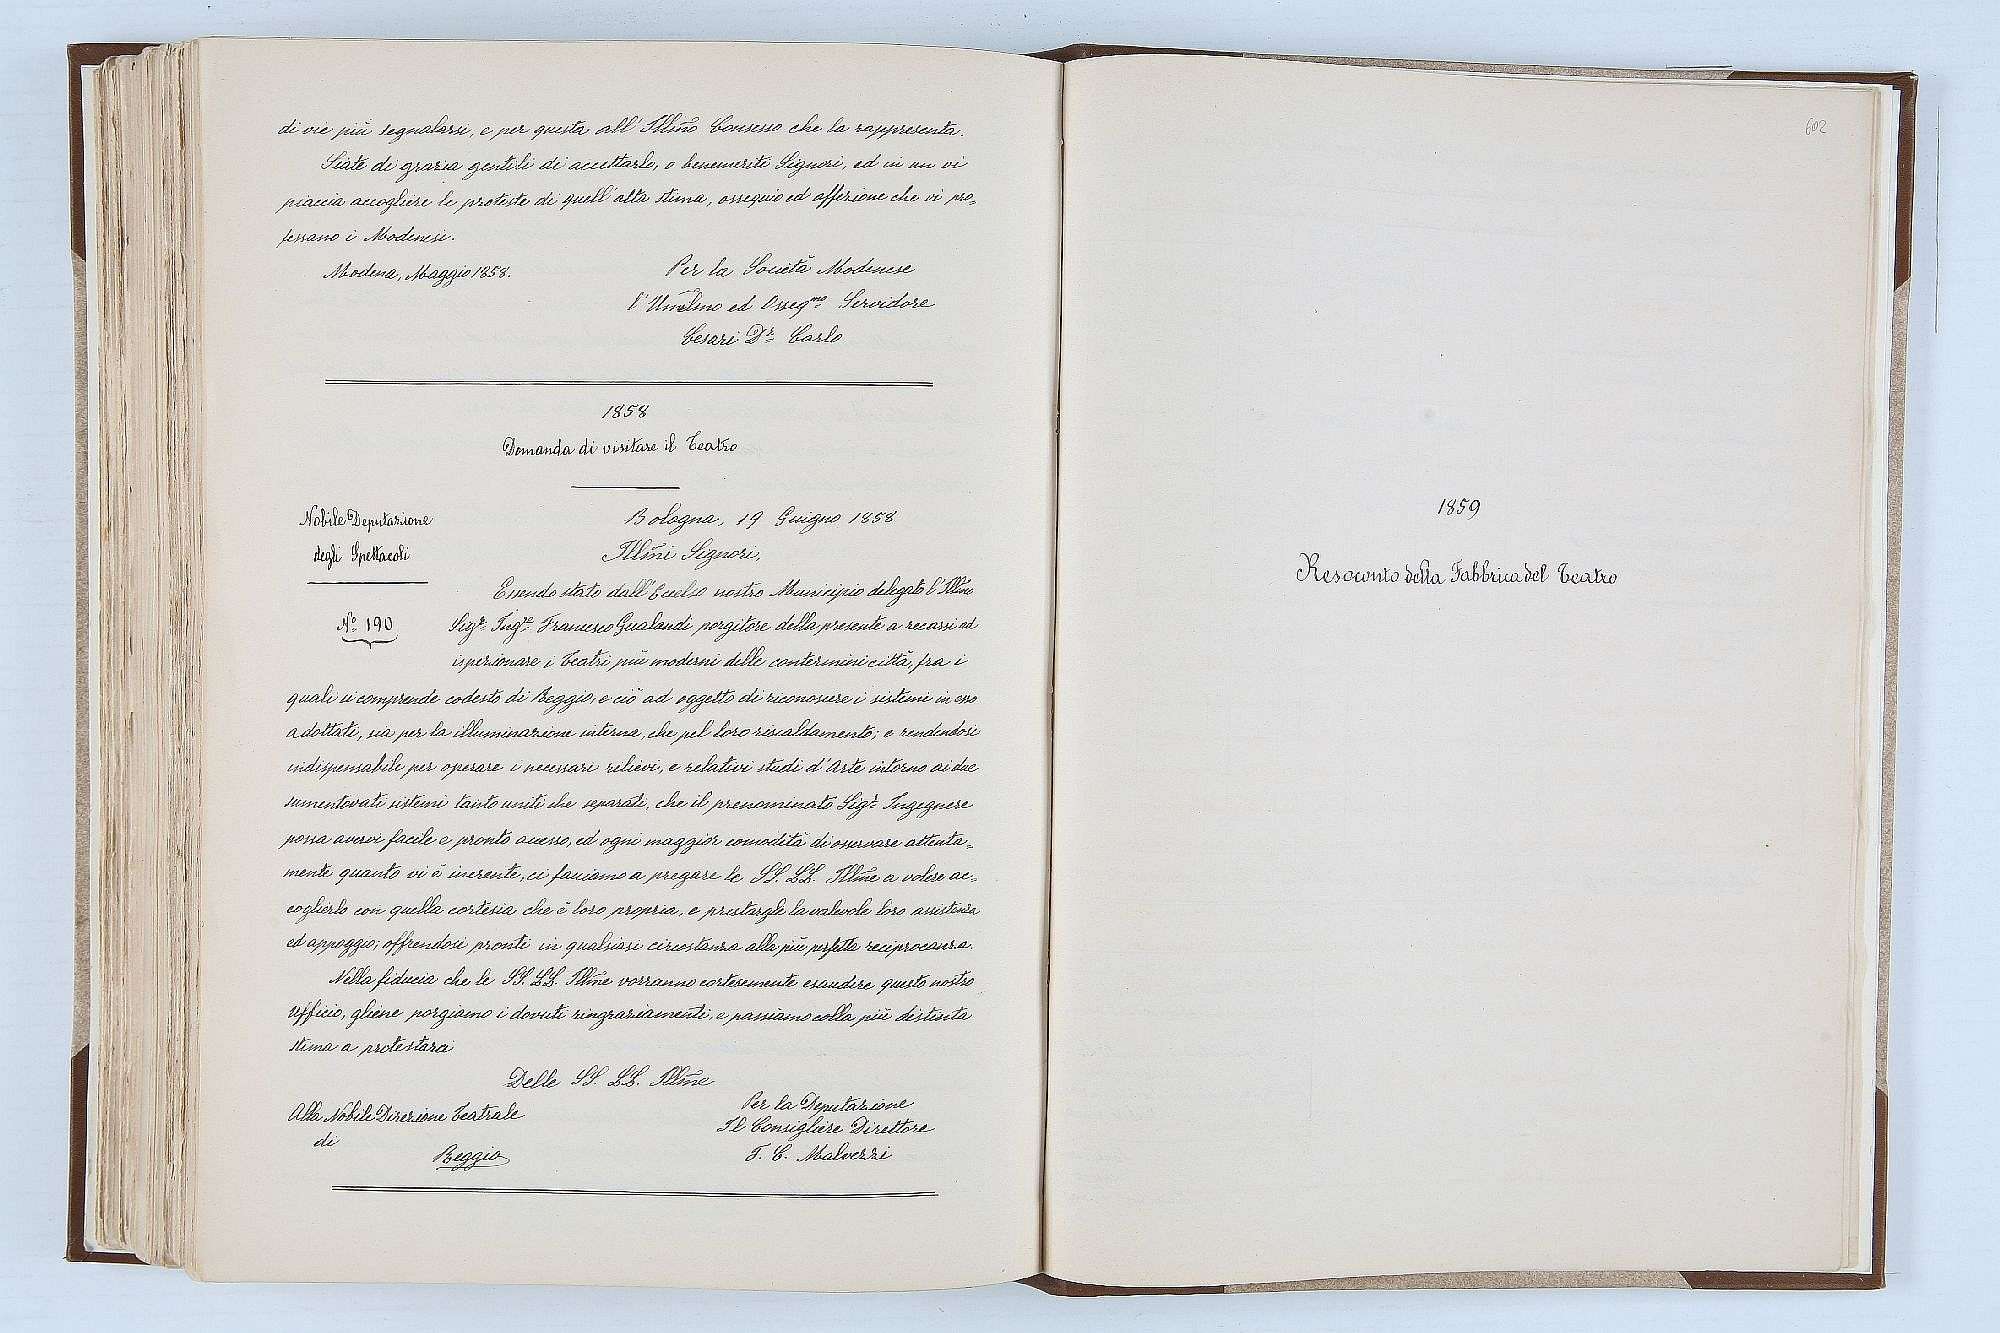 di vie più segnalarsi, e per questa all' Illm̃o Consesso che la rappresenta.
Siate di grazia gentili di accettarle, o benemeriti Signori, ed in un vi
piaccia accogliere le proteste di quell'alta stima, ossequio ed affezione che vi pro=
fessano i Modenesi.
Modena, Maggio 1858.
Per la Società Modenese
l'Umilmo ed Ossegmo Servidore
Cesari Dr. Carlo
1858
Domanda di visitare il Teatro
Nobile Deputazione
degli Spettacoli
No. 190
Bologna, 19 Giugno 1858
Illm̃i Signori,
Essendo stato dall'Eccelso nostro Municipio delegato l'Illm̃o
Sigr. Ingre. Francesco Gualandi porgitore della presente a recassi ad
ispezionare i Teatri più moderni delle contermini città, fra i
quali si comprende codesto di Reggio, e ciò ad oggetto di riconoscere i sistemi in esso
adottati, sia per la illuminazione interna, che pel loro riscaldamento; e rendendosi
indispensabile per operare i necessari relievi, e relativi studi d'Arte intorno ai due
sumentovati sistemi tanto uniti che separati, che il prenominato Sigr. Ingegnere
possa avervi facile e pronto accesso, ed ogni maggior comodità di osservare attenta=
mente quanto vi è inerente, ci facciamo a pregare le SS. LL. Illm̃e a volere ac=
coglierlo con quella cortesia che è loro propria, e prestargli la valevole loro assistenza
ed appoggio; offrendoci pronti in qualsiasi circostanza alla più perfetta reciprocanza.
Nella fiducia che le SS. LL. Illm̃e vorranno cortesemente esaudire questo nostro
Ufficio, gliene porgiamo i dovuti ringraziamenti, e passiamo colla più distinta
stima a protestarci
Delle SS. LL. Illm̃e
Alla Nobile Direzione Teatrale
di
Reggio
Per la Deputazione
Il Consigliere Direttore
T. C. Malvezzi
602
1859
Resoconto della Fabbrica del Teatro